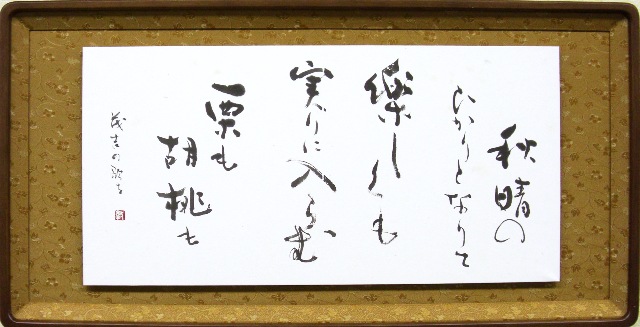 秋晴の
ひかりとなりて
樂しくも
実りに入らむ
栗も
胡桃も
茂吉の歌